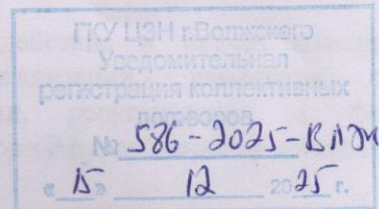 ГКУ ЦЗН г.Волжского
Уведомительная
регистрация коллективных
договоров
№ 586-2025-ВЛЖ
« 15 » 12 2025 г.